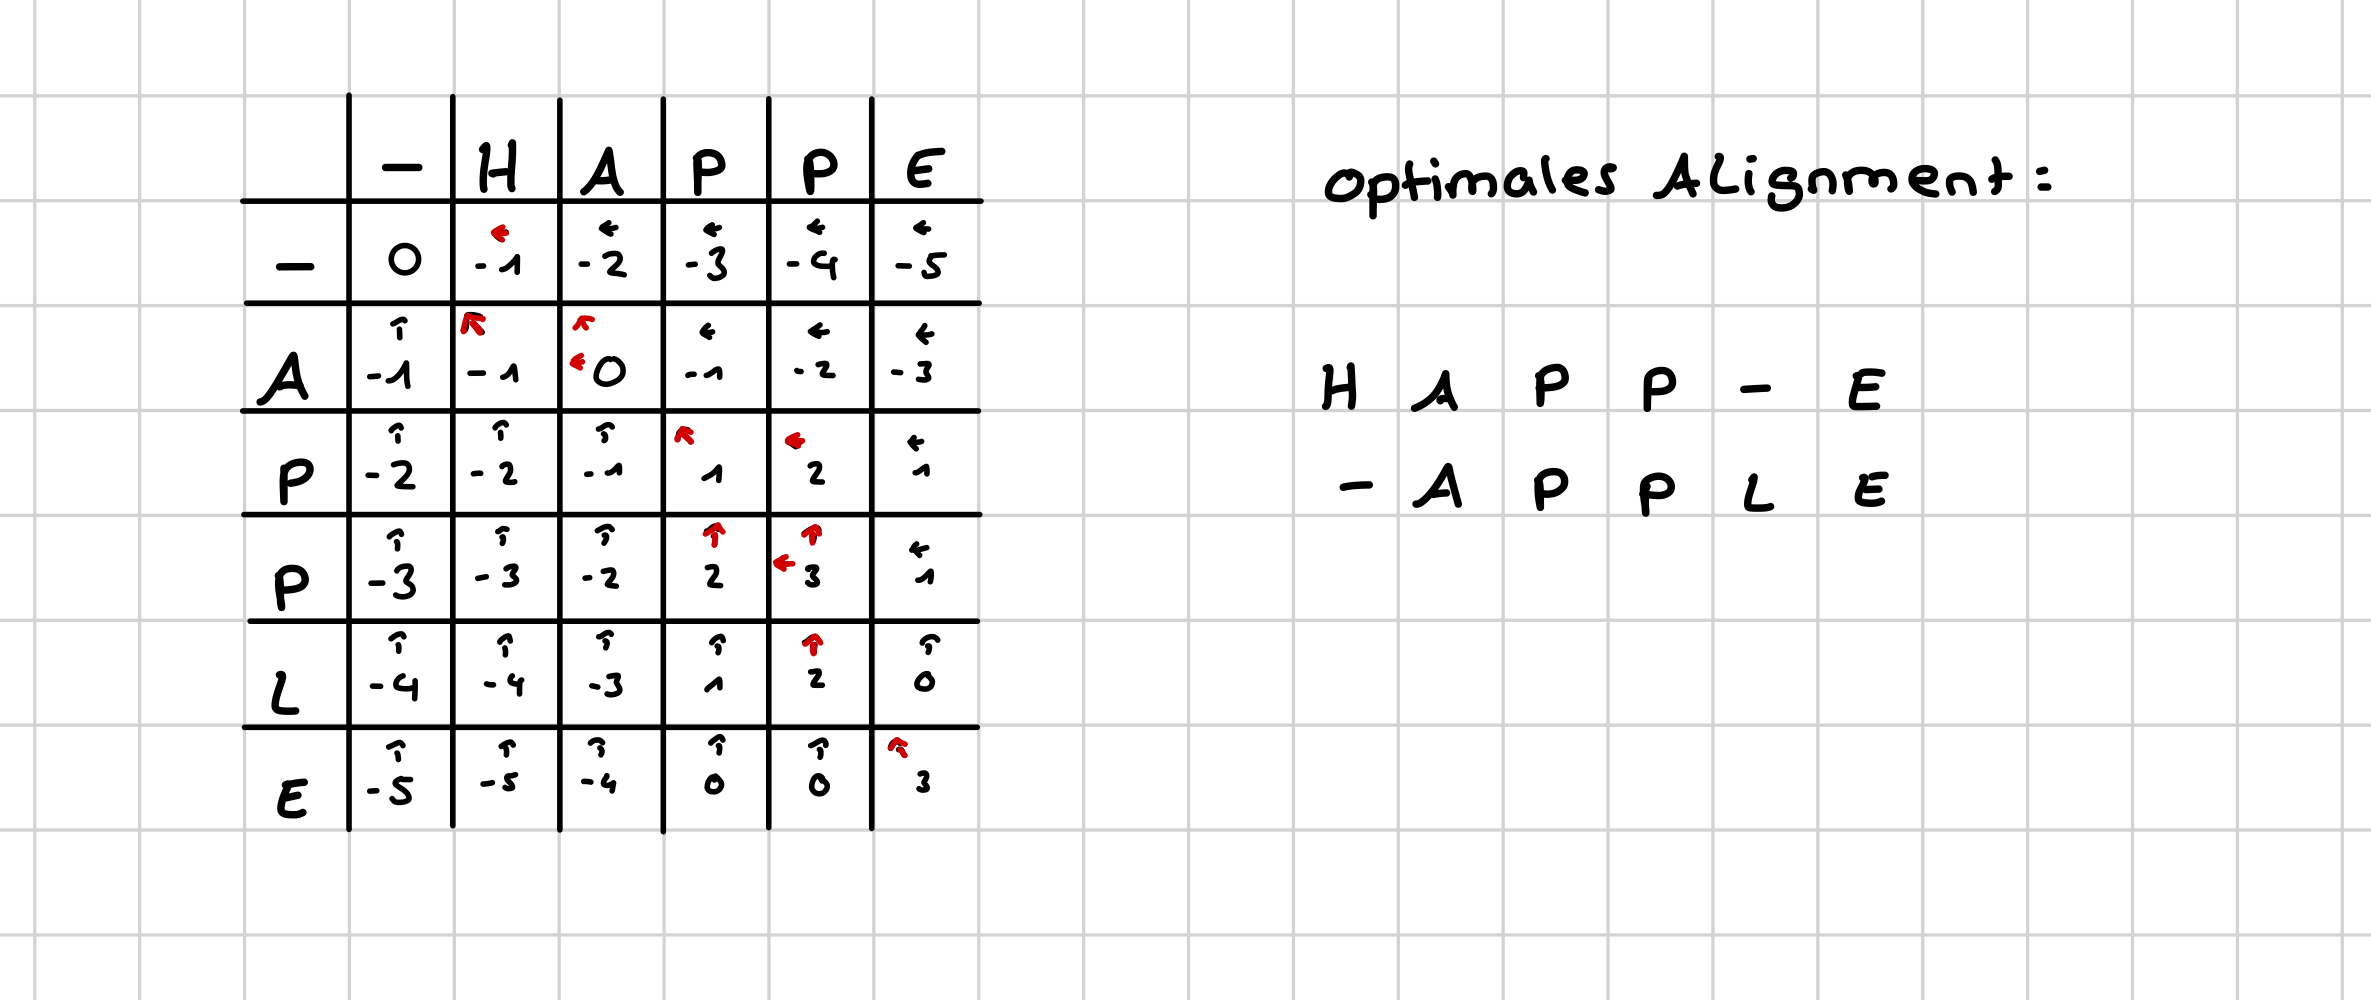 - H A P P E
- 0 ← -1 ← -2 ← -3 ← -4 ← -5
A ↑ -1 ↖ -1 ↖ ← 0 ← -1 ← -2 ← -3
P ↑ -2 ↑ -2 ↑ -1 ↖ 1 ← 2 ← 1
P ↑ -3 ↑ -3 ↑ -2 ↑ 2 ↑ ← 3 ← 1
L ↑ -4 ↑ -4 ↑ -3 ↑ 1 ↑ 2 ↑ 0
E ↑ -5 ↑ -5 ↑ -4 ↑ 0 ↑ 0 ↖ 3
optimales Alignment:
H A P P - E
- A P P L E